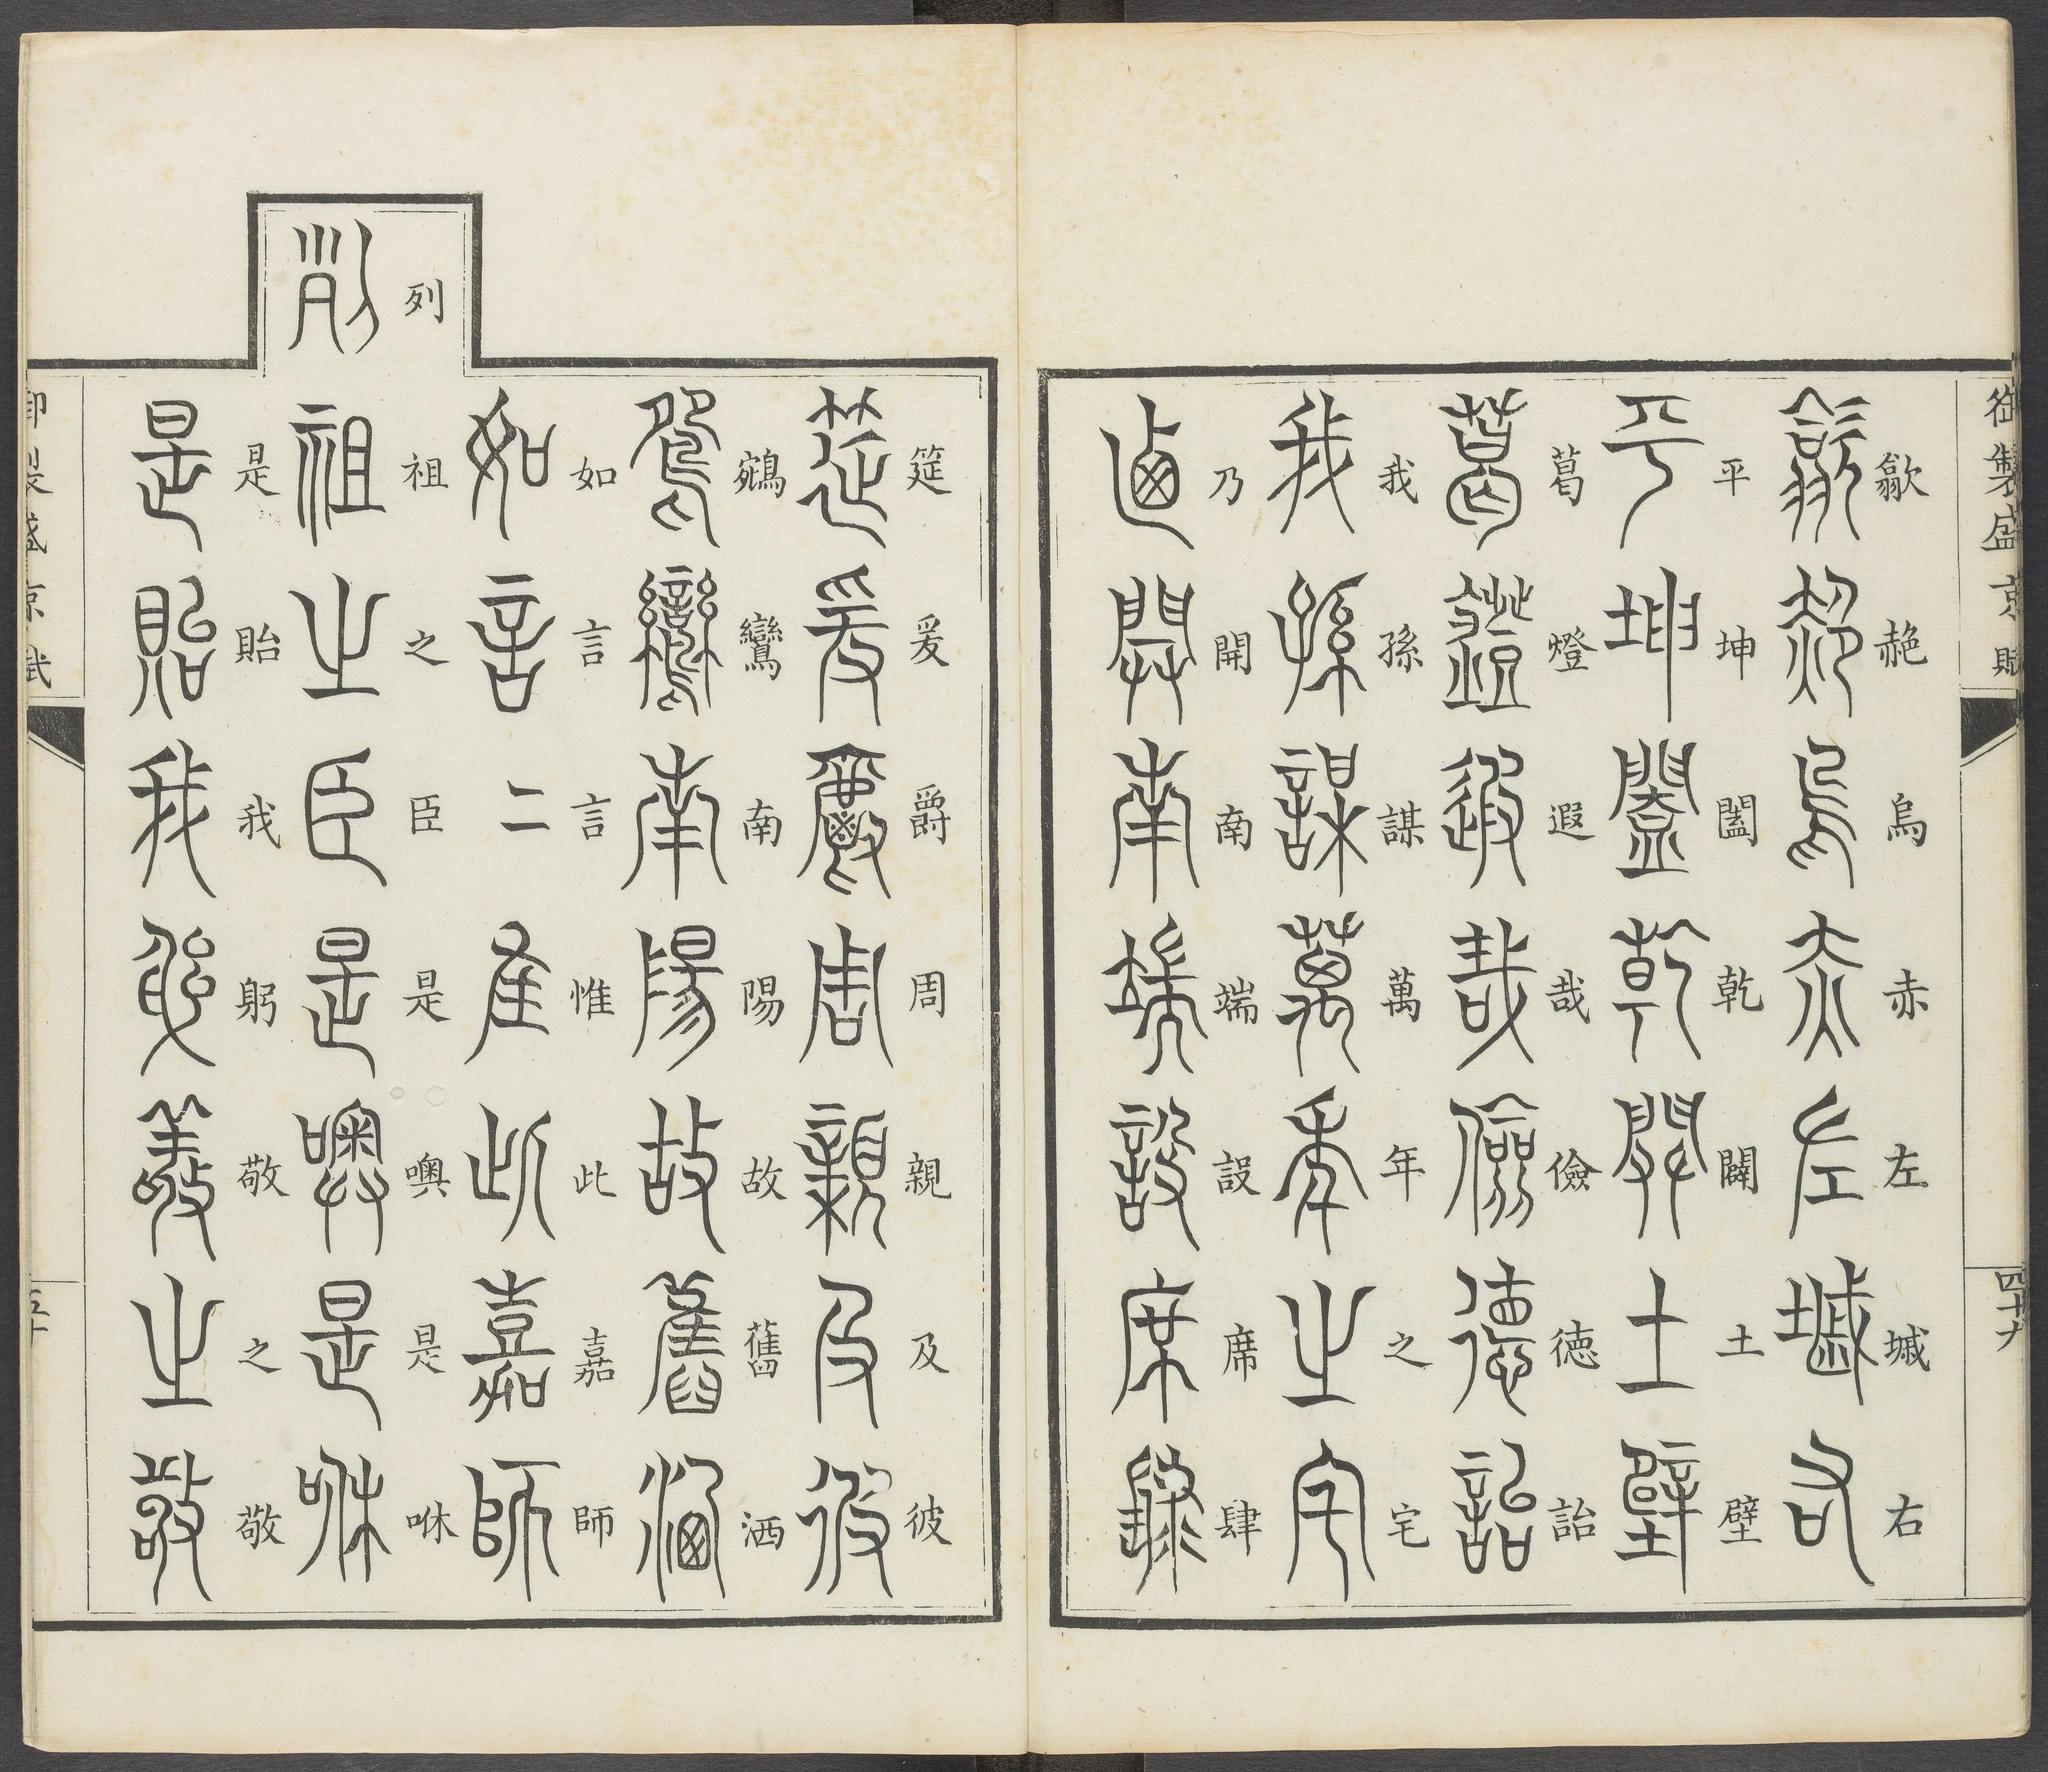 御製盛京賦
四十九
歙赩烏赤左墄右
平坤闔乾闢土壁
葛燈遐哉儉德詒
我孫謀萬年之宅
乃開南端設席肆
筵爰爵周親及彼
鵷鸞南陽故舊洒
如言言惟此嘉師
列
祖之臣是噢是咻
是貽我躬敬之敬
御製盛京賦
五十